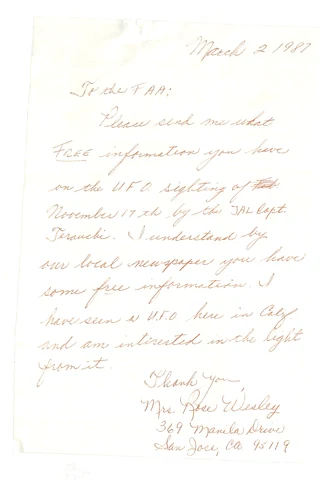 March 2 1987
To the FAA:
Please send me what
FREE information you have
on the U.F.O. sighting of
November 17th by the JAL Capt.
Terauchi. I understand by
our local newspaper you have
some free information. I
have seen a UFO here in Calif
and am intirested in the light
from it.
Thank You,
Mrs. Rose Wesley
369 Manila Drive
San Jose, CA 95119